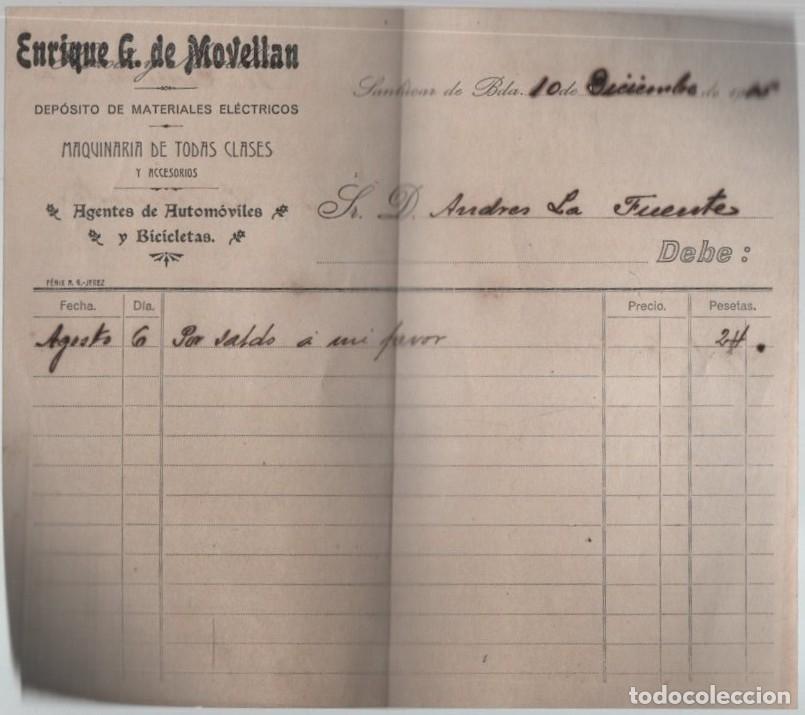 Enrique G. de Movellan
DEPÓSITO DE MATERIALES ELÉCTRICOS
MAQUINARIA DE TODAS CLASES
Y ACCESORIOS
Agentes de Automóviles
y Bicicletas.
FÉNIX A. G.-JEREZ
Sanlúcar de Bda. 10 de Diciembre de
Sr. D. Andres La Fuente
Debe:
Fecha. Día. Precio. Pesetas.
Agosto 6 Por saldo á mi favor 24.
todocoleccion